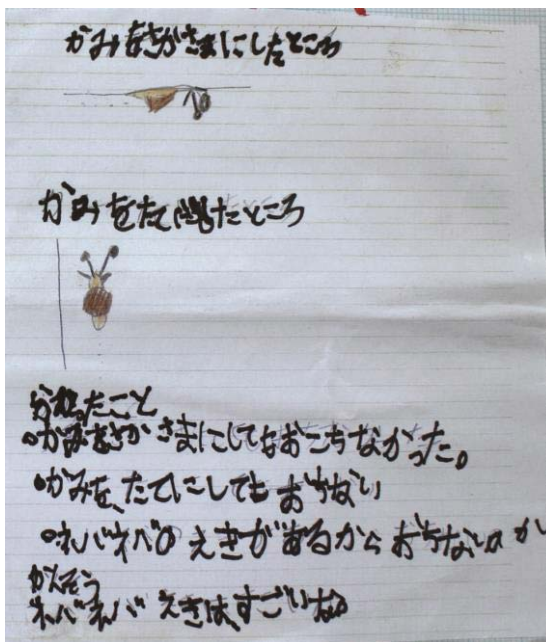 かみをさかさまにしたところ
かみをたてにしたところ
分かったこと
・かみをさかさまにしてもおこちなかった。
・かみを、たてにしてもおちない
・ネバネバのえきがあるからおちない
かんそう
ネバネバえきは、すごいな